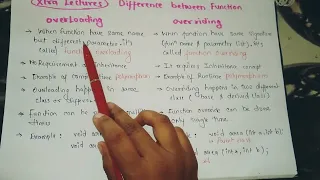 Xtra Lectures
Difference between Function
overloading
overriding
→ When function have same name
but different parameter, it's
called function overloading
→ No Requirement of Inheritance
→ Example of compile time polymorphism
→ overloading happen in same
class or
→ Function can be
times
→ Example : void
void
→ When function have same signature
name & parameter list), it's
called function overriding
→ It requires Inheritance concept
→ Example of Runtime polymorphism
→ Overriding happens in two different
class (base & derived class)
→ Function override can be done
only single time
void area (int a, int b);
parent class
area (int a, int b);